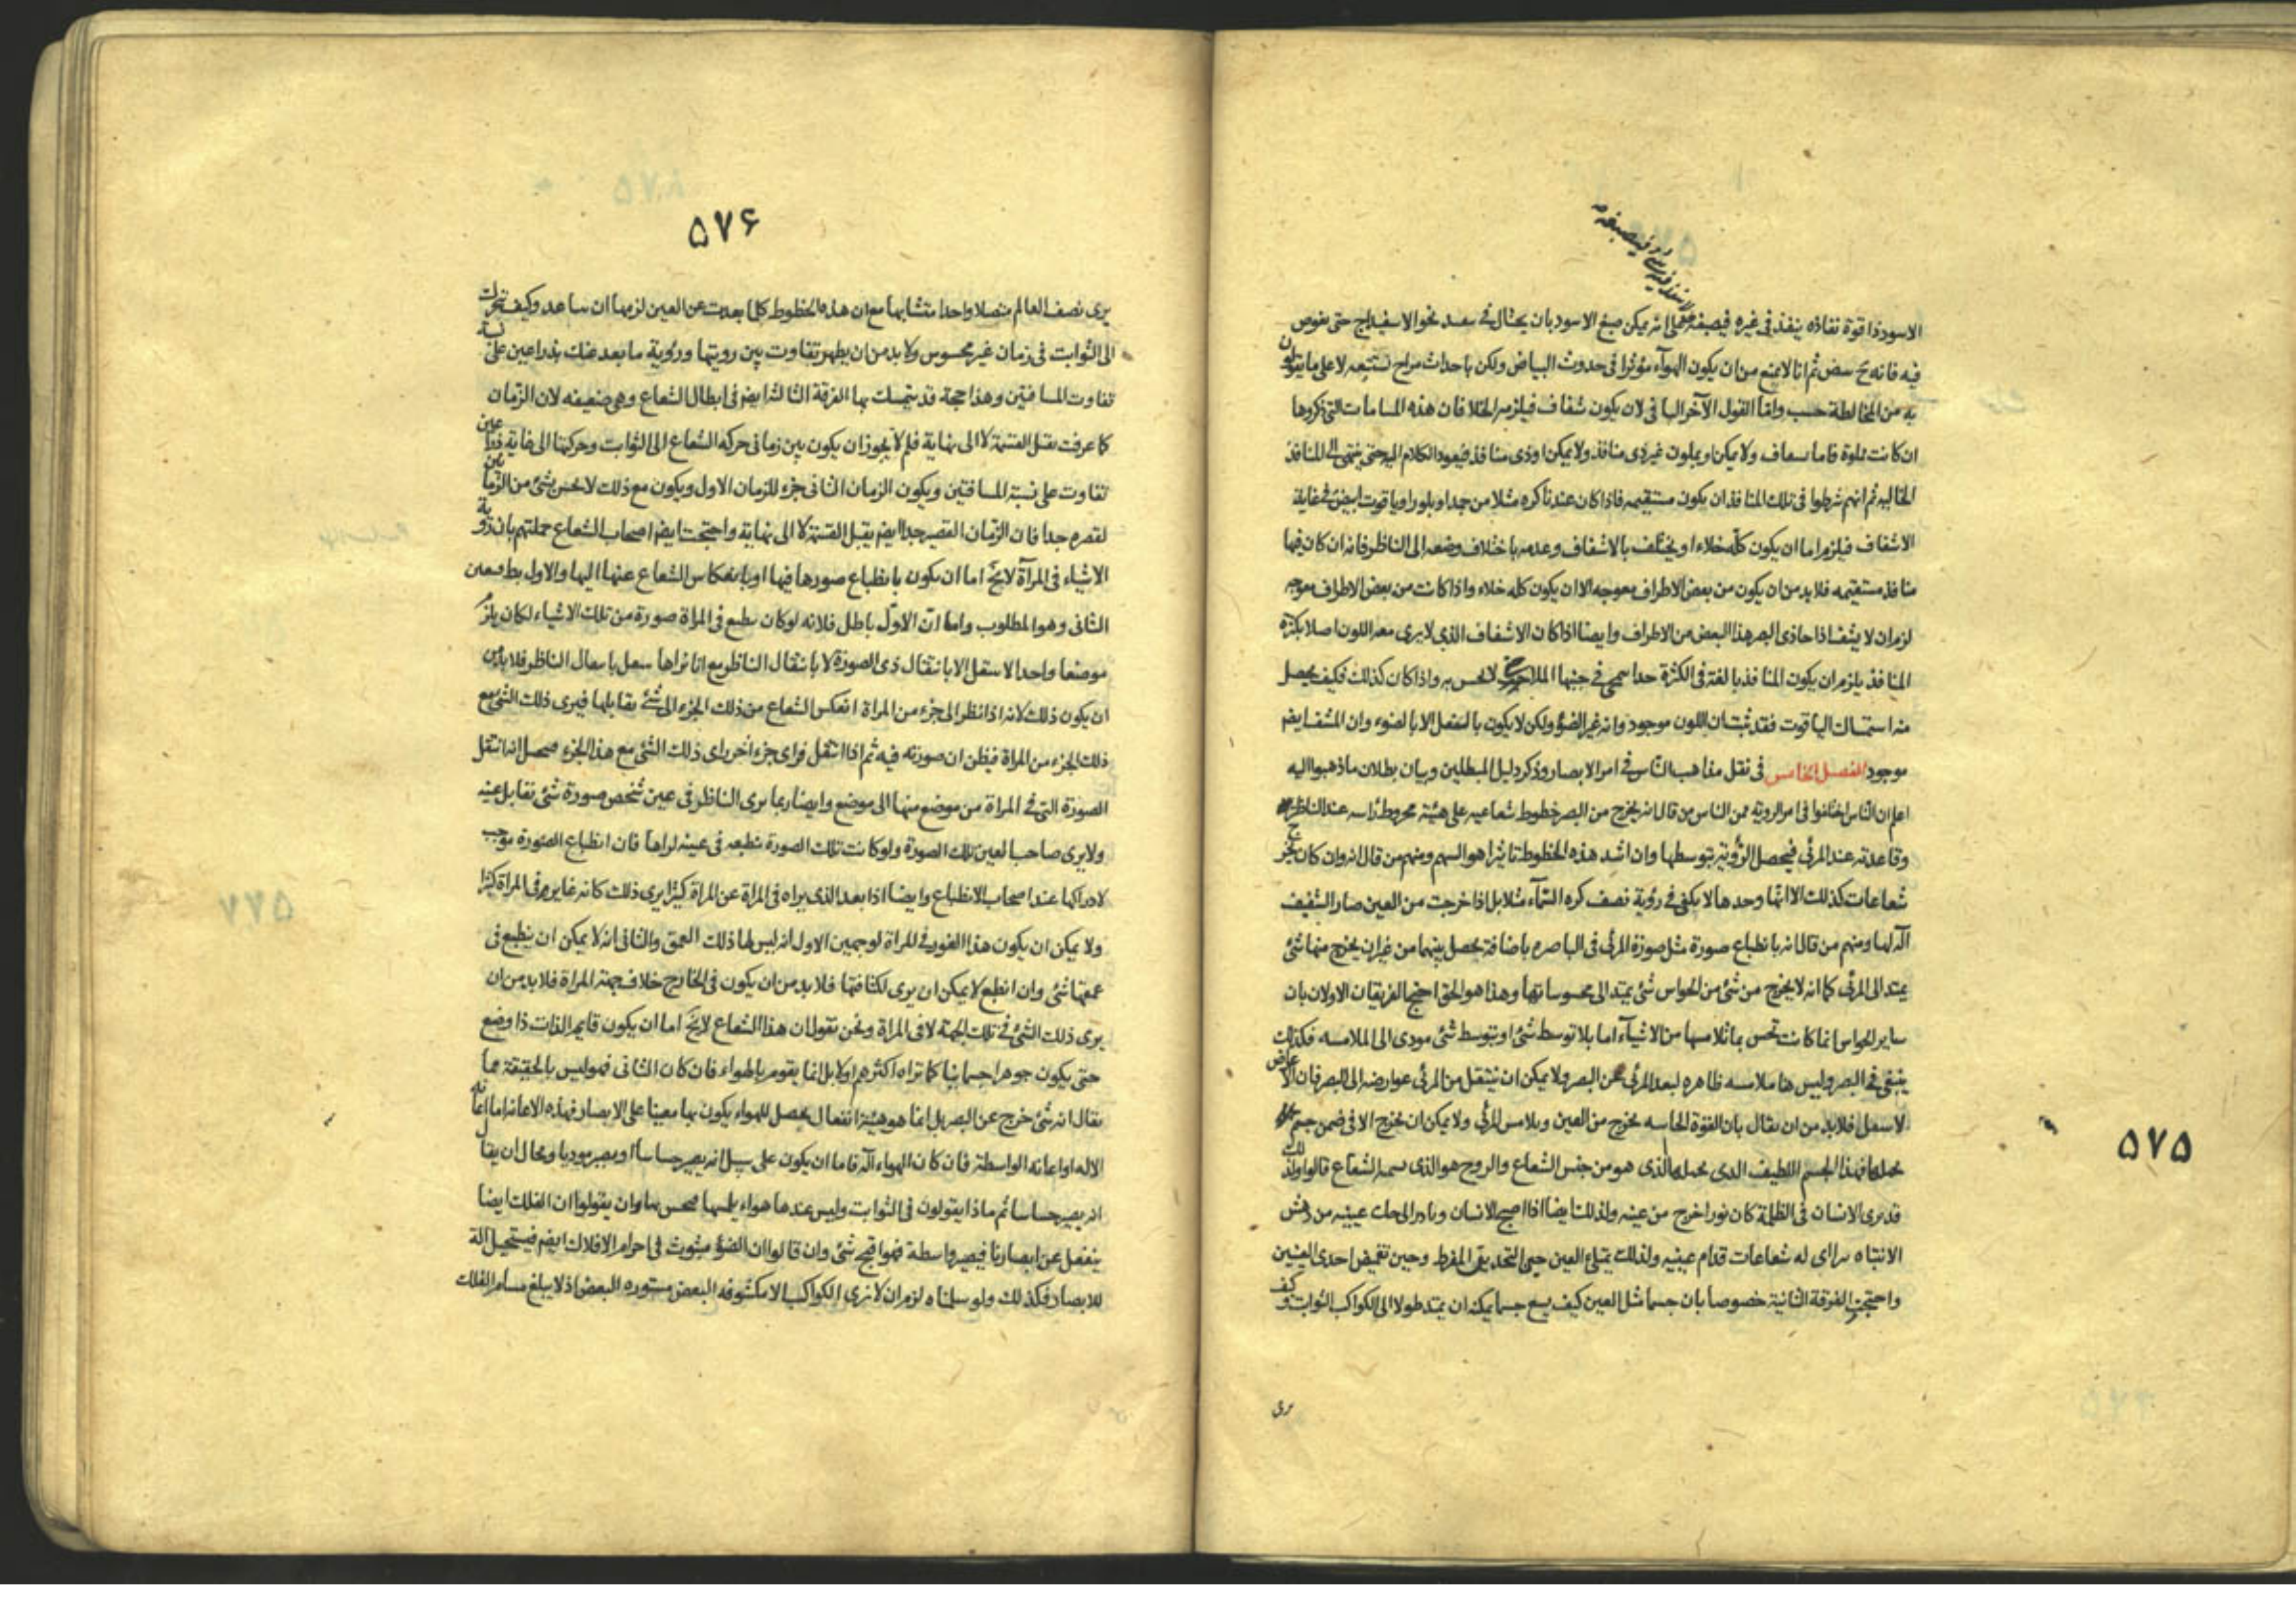 ۵۷۵
الاسود ذا قوة نفاذه ينفذ فى غيره فيصبغه على انه يمكن صبغ الاسود بان يحتال فى نحو الاسفيداج حتى يغوص
فيه فانه ثم انا لا نمنع من ان يكون الهوآء مؤثرا فى حدوث البياض ولكن باحداث مزاج يستتبعه لا على ما يقولون
به من المخالطة حسب واما القول الآخر لان يكون شفاف فيلزمه الخلا فان هذه المسامات التى ذكروها
ان كانت مملوة فاما ولا يمكن او بملون غير ذى منافذ ولا يمكن او ذى منافذ فيعود الكلام اليه حتى ينتهى الى المنافذ
الخاليه ثم انهم شرطوا فى تلك المنافذ ان يكون مستقيمه فاذا كان عندنا كره مثلا من جمد او بلور او ياقوت ابيض فى غاية
الاشفاف فيلزم اما ان يكون كله خلاء او يختلف بالاشفاف وعدمه باختلاف وضعه الى الناظر فانه ان كان فيها
منافذ مستقيمه فلا بد من ان يكون من بعض الاطراف معوجه الا ان يكون كله خلاء واذا كانت من بعض الاطراف معوجه
لزم ان لا يشف اذا حاذى البصر هذا البعض من الاطراف وايضا اذا كان الاشفاف الذى لا يرى معه اللون اصلا بكثرة
المنافذ يلزم ان يكون المنافذ بالغة فى الكثرة حدا فى جنبها لا يحس به واذا كان كذلك فكيف يحصل
منه استمساك الياقوت فقد ثبت ان اللون موجود وانه غير الضؤ ولكن لا يكون بالفعل الا بالضوء وان المشف ايضم
موجود الفصل الخامس فى نقل مذاهب الناس فى امر الابصار وذكر دليل المبطلين وبيان بطلان ما ذهبوا اليه
اعلم ان الناس اختلفوا فى امر الرويه فمن الناس من قال انه يخرج من البصر خطوط شعاعيه على هيئة مخروط راسه عند الناظر
وقاعدته عند المرئى فيحصل الرؤيه بتوسطها وان اشد هذه الخطوط تاثيرا هو السهم ومنهم من قال انه وان كان يخرج
شعاعات كذلك الا انها وحدها لا يكفى فى رؤية نصف كره السمآء مثلا بل اذا خرجت من العين صار الشفيف
آلة لها ومنهم من قال انه بانطباع صورة مثل صورة المرئى فى الباصره باضافة يحصل بينهما من غير ان يخرج منها شئ
يمتد الى المرئى كما انه لا يخرج من شئ من الحواس شئ يمتد الى محسوساتها وهذا هو الحق احتج الفريقان الاولان بان
ساير الحواس انما كانت تحس بما تلامسها من الاشيآء اما بلا توسط شئ او بتوسط شئ مودى الى الملامسه فكذلك
ينبغى فى البصر وليس هنا ملامسه ظاهره لبعد المرئى عن البصر ولا يمكن ان ينتقل من المرئى عوارضه الى البصر فان الاعراض
لا ينتقل فلا بد من ان يقال بان القوة الحاسه يخرج من العين ويلامس المرئى ولا يمكن ان يخرج الا فى ضمن جسم
يحملها فهذا الجسم اللطيف الذى يحملها الذى هو من جنس الشعاع والروح هو الذى نسميه الشعاع قالوا ولذلك
قد يرى الانسان فى الظلمة كان نورا خرج من عينه ولذلك ايضا اذا اصبح الانسان وبادر الى حك عينيه من دهش
الانتباه تراآى له شعاعات قدام عينيه ولذلك يمتلى العين حين التحديق المفرط وحين تغميض احدى العينين
واحتجت الفرقة الثانية خصوصا بان جسما مثل العين كيف يسع جسما يمكنه ان يمتد طولا الى الكواكب الثوابت وكيف
يرى
۵۷۶
يرى نصف العالم متصلا واحدا متشابها مع ان هذه الخطوط كلما بعدت عن العين لزمها ان تباعد وكيف تحركت
الى الثوابت فى زمان غير محسوس ولا بد من ان يظهر تفاوت بين رويتها ورؤية ما بعد عنك بذراعين على نسبة
تفاوت المسافتين وهذا حجة قد يتمسك بها الفرقة الثالثة ايضم فى ابطال الشعاع وهى ضعيفه لان الزمان
كما عرفت يقبل القسمة لا الى نهاية فلم لا يجوز ان يكون بين زمانى حركه الشعاع الى الثوابت وحركتها الى غاية ذراعين
تفاوت على نسبة المسافتين ويكون الزمان الثانى جزء للزمان الاول ويكون مع ذلك لا يحس بشئ من الزمانين
لقصره جدا فان الزمان القصير جدا ايضم يقبل القسمة لا الى نهاية واحتجت ايضم اصحاب الشعاع جملتهم بان رؤية
الاشياء فى المرآة لايخ اما ان يكون بانطباع صورها فيها او بانعكاس الشعاع عنها اليها والاول بط فتعين
الثانى وهو المطلوب واما ان الاول باطل فلانه لو كان ينطبع فى المراة صورة من تلك الاشياء لكان يلزم
موضعا واحدا لا ينتقل الا بانتقال ذى الصورة لا بانتقال الناظر مع انا نراها ينتقل بانتقال الناظر فلا بد من
ان يكون ذلك لانه اذا نظر الى جزء من المراة انعكس الشعاع من ذلك الجزء الى شئ يقابلها فيرى ذلك الشئ مع
ذلك الجزء من المراة فيظن ان صورته فيه ثم اذا انتقل فراى جزء آخر راى ذلك الشئ مع هذا الجزء انه انتقل
الصورة التى فى المراة من موضع منها الى موضع وايضا ربما يرى الناظر فى عين شخص صورة شئ تقابل عينه
ولا يرى صاحب العين تلك الصورة ولو كانت تلك الصورة منطبعه فى عينه لراها فان انطباع الصورة موجب
لادراكها عند اصحاب الانطباع وايضا اذا بعد الذى يراه فى المراة عن المراة كثيرا يرى ذلك كانه غاير فى المراة كثيرا
ولا يمكن ان يكون هذا الغور فى المراة لوجهين الاول انه ليس لها ذلك العمق والثانى انه لا يمكن ان ينطبع فى
عمقها شئ وان انطبع لا يمكن ان يرى لكثافتها فلا بد من ان يكون فى الخارج خلاف جهة المراة فلا بد من ان
يرى ذلك الشئ فى تلك الجهة لا فى المراة ونحن نقول ان هذا الشعاع لايخ اما ان يكون قايم الذات ذا وضع
حتى يكون جوهرا جسمانيا كما تراه اكثرهم او لا بل انما يقوم بالهواء فان كان الثانى فهو ليس بالحقيقة مما
يقال انه شئ خرج عن البصر بل انما هو هيئة انفعال يحصل للهواء يكون بها معينا على الابصار فهذه الاعانه اما اعانة
الاله او اعانه الواسطة فان كان الهواء آلة فاما ان يكون على سبيل انه يصير حساسا او يصير موديا ومحال ان يقال
انه يصير حساسا ثم ماذا يقولون فى الثوابت وليس عندها هواء يلمسها وان يقولوا ان الفلك ايضا
ينفعل عن ابصارنا فيصير واسطة فهو اقبح شئ وان قالوا ان الضؤ مبثوث فى اجرام الافلاك ايضم فيستحيل الة
للابصار فكذلك ولو سلمناه لزم ان لا نرى الكواكب الا مكشوفه البعض مستوره البعض اذ لا يبلغ مسام الفلك